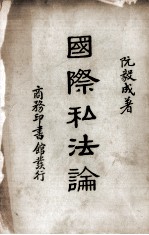 阮毅成著
國際私法論
商務印書館發行